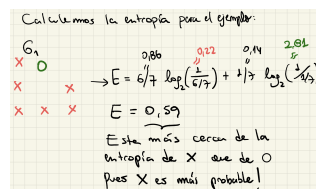 Calculemos la entropía para el ejemplo:
G₁
X O
X X
X X X
0,86 0,22 0,14 2,81
→ E = 6/7 log₂(1/6/7) + 1/7 log₂(1/1/7)
E = 0,59
Este más cerca de la
entropía de X que de O
pues X es más probable!